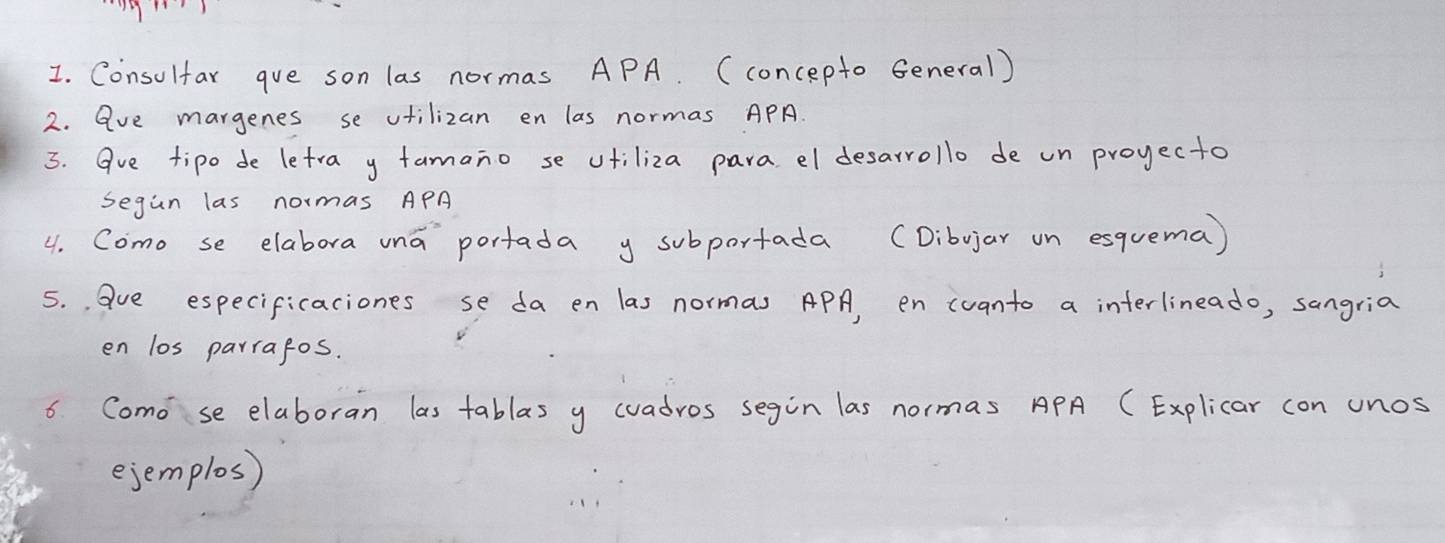 1. Consultar que son las normas APA. (concepto General)
2. Que margenes se utilizan en las normas APA.
3. Que tipo de letra y tamaño se utiliza para el desarrollo de un proyecto
según las normas APA
4. Cómo se elabora una portada y subportada (Dibujar un esquema)
5. Que especificaciones se da en las normas APA, en cuanto a interlineado, sangria
en los parrafos.
6. Como se elaboran las tablas y cuadros según las normas APA (Explicar con unos
ejemplos)